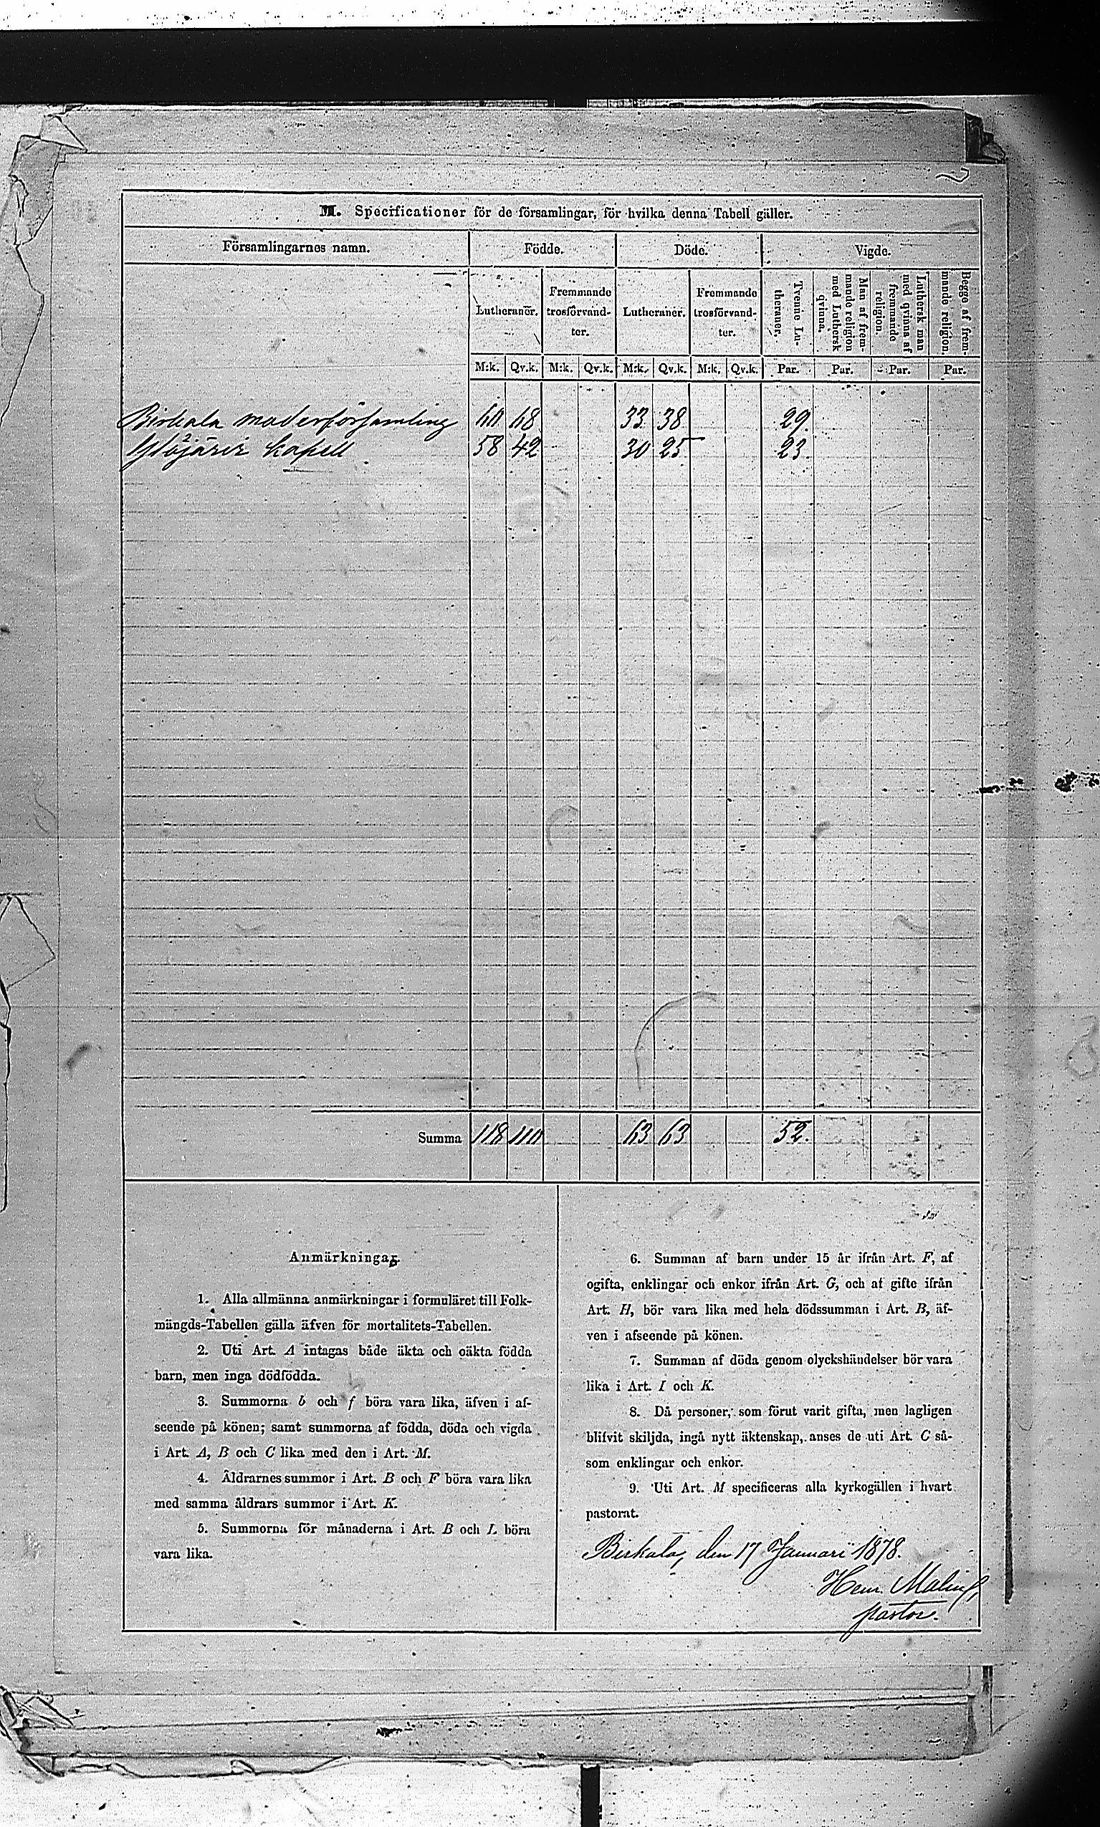 M. Specificationer för de församlingar, för hvilka denna Tabell gäller.
Församlingarnes namn. Födde. Döde. Vigde.
Lutheraner. Fremmande trosförvandter. Lutheraner. Fremmande trosförvandter. Tvenne Lutheraner. Man af fremmande religion med Luthersk qvinna. Luthersk man med qvinna af fremmande religion. Begge af fremmande religion.
M:k. Qv.k. M:k. Qv.k. M:k. Qv.k. M:k. Qv.k. Par. Par. Par. Par.
Birkala moderförsamling 60 68 33 38 29
Ylöjärvi kapell 58 42 30 25 23
Summa 118 110 63 63 52.
Anmärkningar.
1. Alla allmänna anmärkningar i formuläret till Folk-
mängds-Tabellen gälla äfven för mortalitets-Tabellen.
2. Uti Art. A intagas både äkta och oäkta födda
barn, men inga dödfödda.
3. Summorna b och f böra vara lika, äfven i af-
seende på könen; samt summorna af födda, döda och vigda
i Art. A, B och C lika med den i Art. M.
4. Åldrarnes summor i Art. B och F böra vara lika
med samma åldrars summor i Art. K.
5. Summorna för månaderna i Art. B och L böra
vara lika.
6. Summan af barn under 15 år ifrån Art. F, af
ogifta, enklingar och enkor ifrån Art. G, och af gifte ifrån
Art. H, bör vara lika med hela dödssumman i Art. B, äf-
ven i afseende på könen.
7. Summan af döda genom olyckshändelser bör vara
lika i Art. I och K.
8. Då personer, som förut varit gifta, men lagligen
blifvit skiljda, ingå nytt äktenskap, anses de uti Art. C så-
som enklingar och enkor.
9. Uti Art. M specificeras alla kyrkogällen i hvart
pastorat.
Birkala, den 17 Januari 1878.
Henr. Malin
pastor.